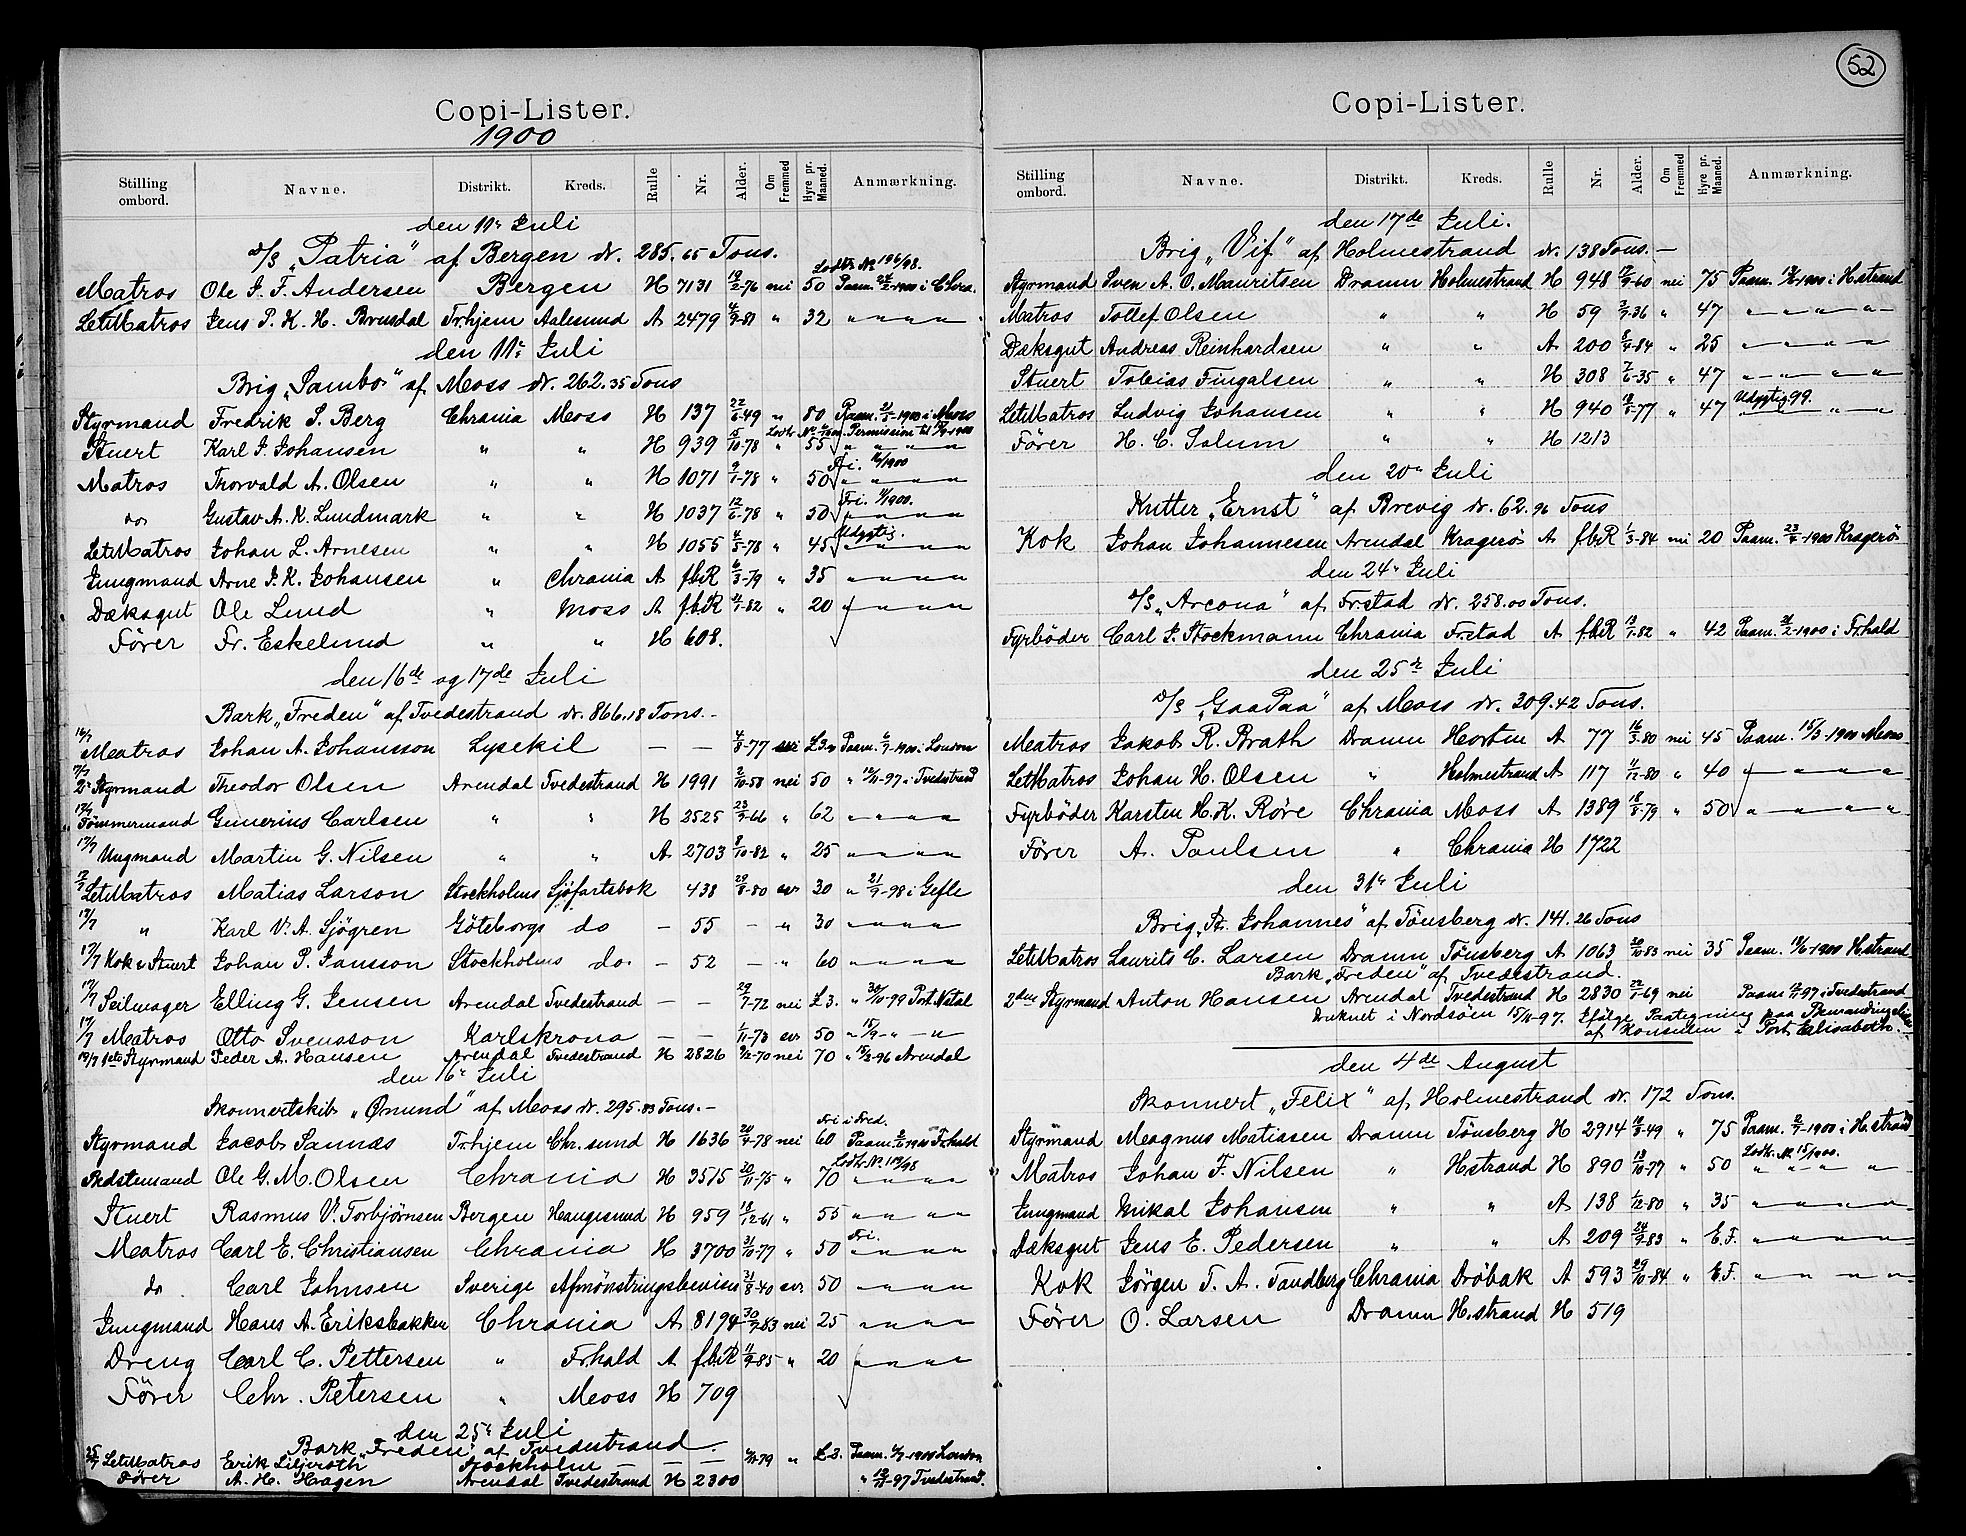 52
Copi-Lister.
1900
Stilling ombord. Navne. Distrikt. Kreds. Rulle Nr. Alder. Om Fremmed Hyre pr. Maaned. Anmærkning.
den 11te Juli
D/S „Patria" af Bergen dr. 285.65 Tons.
Lodtr. No 196/98.
Matros Ole J. F. Andersen Bergen H 7131 19/2-76 nei 50 Paam. 24/2-1900 i Chra.
LetMatros Jens P. K. H. Brusdal Tr.hjem Aalesund A 2479 4/9-81 " 32 " " " "
den 11te Juli
Brig „Sambo" af Moss dr. 262.35 Tons
Styrmand Fredrik S. Berg Chrania Moss H 137 22/6-49 " 80 Paam. 21/5-1900 i Moss
Stuert Karl J. Johansen " " H 939 15/10-78 55 " " " "
Fri. 1900
Matros Thorvald A. Olsen " " H 1071 9/1-78 " 50 " " " "
Fri. 1900.
do Gustav A. K. Lundmark " " H 1037 12/6-78 " 50 " " " "
Udygtig.
LetMatros Johan L. Arnesen " " H 1055 4/5-78 " 45 " " " "
Jungmand Arne J. K. Johansen " Chrania A fbR 6/3-79 " 35 " " " "
Dæksgut Ole Lund " Moss A fbR 4/1-82 " 20 " " " "
Fører Fr. Eskelund " " H 608.
den 16de og 17de Juli
Bark „Freden" af Tvedestrand dr. 866.18 Tons.-
16/7 Matros Johan A. Johansson Lysekil — — 4/8-77 svr £3 Paam. 6/7-1900 i London
17/7 2. Styrmand Theodor Olsen Arendal Tvedestrand H 1991 2/10-58 nei 50 " 12/11-97 i Tvedestrand
17/7 Tømmermand Gunerius Carlsen " " H 2525 23/9-66 " 62 " " " "
17/7 Ungmand Martin G. Nilsen " " A 2703 8/10-82 " 25 " " " "
17/7 LetMatros Matias Larson Stockholms Sjöfartsbok 438 29/8-80 svr 30 " 21/9-98 i Gefle
17/7 " Karl V. A. Sjögren Göteborgs do — 55 — " 30 " " " "
17/7 Kok & Stuert Johan P. Jansson Stockholms do. — 52 — " 60 " " " "
17/7 Seilmager Elling G. Jensen Arendal Tvedestrand — — 29/7-72 nei £3. " 30/10-99 Port. Natal
17/7 Matros Otto Svensson Karlskrona — — 1/11-73 svr 50 " 15/9- " - "
17/7 1ste Styrmand Peder A. Hansen Arendal Tvedestrand H 2826 9/12-70 nei 70 " 15/2-96 Arendal
den 16de Juli
Skonnertskib „Ønund" af Moss dr. 295.83 Tons.-
Fri i Fred.
Styrmand Jacob Sannæs Tr.hjem Chr.sund H 1636 20/4-78 nei 60 Paam. 2/6-1900 Fr.hald
Lodtr. No. 119/98
Bedstemand Ole G. M. Olsen Chrania H 3515 20/11-75 " 70 " " " "
Stuert Rasmus V. Torbjørnsen Bergen Haugesund H 959 18/12-61 " 55 " " " "
Fri.
Matros Carl E. Christiansen Chrania H 3700 31/10-77 " 50 " " " "
do. Carl Johnsen Sverige Afmønstringsbevis 21/8-40 svr. 50 " " " "
Jungmand Hans A. Eriksbakken Chrania A 8194 30/7-83 nei 25 " " " "
Dreng Carl C. Pettersen " Fr.hald A fbR 11/9-85 " 20 " " " "
Fører Chr. Petersen " Moss H 709
den 25de Juli
Bark „Freden" af Tvedestrand.
25/7 LetMatros Erik Liljeroth Stockholm — — — -79 " £3. Paam. 6/7-1900 London
Fører A. H. Haagen Arendal Tvedestrand H 2300 " -97 Tvedestrand.
Copi-Lister.
Stilling ombord. Navne. Distrikt. Kreds. Rulle Nr. Alder. Om Fremmed Hyre pr. Maaned. Anmærkning.
den 17de Juli.
Brig „Vif" af Holmestrand dr. 138 Tons.—
Styrmand Sven A. O. Mauritsen Dramn Holmestrand H 948 12/9-60 nei 75 Paam. -1900 i H.strand
Matros Tollef Olsen " " H 59 2/7-36 " 47 " " " "
Dæksgut Andreas Reinhardsen " " A 200 8/4-84 " 25 " " " "
Stuert Tobias Fingalsen " " H 308 7/6-35 " 47 " " " "
Udygtig 99.
LetMatros Ludvig Johansen " " H 940 18/8-77 " 47 " "
Fører H. C. Solum " " H 1213
den 20de Juli
Kutter „Ernst" af Brevig dr. 62.96 Tons
Kok Johan Johannesen Arendal Kragerø A fbR 1/3-84 nei 20 Paam. 23/4-1900 Kragerø
den 24de Juli
D/S „Arcona" af Fr.stad dr. 258.00 Tons.
Fyrbøder Carl J. Stockmann Chrania Fr.stad A fbR 13/1-82 " 42 Paam. 21/2-1900 i Fr.hald
den 25de Juli
D/S „GaaPaa" af Moss dr. 309.42 Tons.
Matros Jakob R. Brath Dramn Horten A 77 16/3-80 nei 45 Paam. 15/3-1900 Moss
LetMatros Johan H. Olsen " Holmestrand A 117 11/12-80 " 40 " " " "
Fyrbøder Karsten H. K. Røre Chrania Moss A 1389 18/8-79 " 50 " " " "
Fører A. Paulsen " Chrania H 1722
den 31te Juli
Brig „St. Johannes" af Tønsberg dr. 141.26 Tons
LetMatros Laurits C. Larsen Dramn Tønsberg A 1063 20/10-83 nei 35 Paam. 19/6-1900 H.strand
Bark „Freden" af Tvedestrand.
2den Styrmand Anton Hansen Arendal Tvedestrand H 2830 22/1-69 nei Paam. -97 i Tvedestrand
Druknet i Nordsøen 15/11-97. Ifølge Paategning paa
af Konsulen i Port Elisabeth.
den 4de August
Skonnert „Felix" af Holmestrand dr. 172 Tons.
Styrmand Magnus Matiasen Dramn Tønsberg H 2914 18/9-49 " 75 Paam. 2/7-1900 i H.strand
Lodtr. No 15/1900.
Matros Johan F. Nilsen " H.strand H 890 13/10-77 " 50 " " " "
Jungmand Mikal Johansen " " A 138 1/12-80 " 35 " " " "
Dæksgut Jens E. Pedersen " " A 209 24/9-83 " E.F. " " " "
Kok Jørgen T. A. Tandberg Chrania Drøbak A 593 29/10-84 " E.F. " " " "
Fører O. Larsen Dramn H.strand H 519